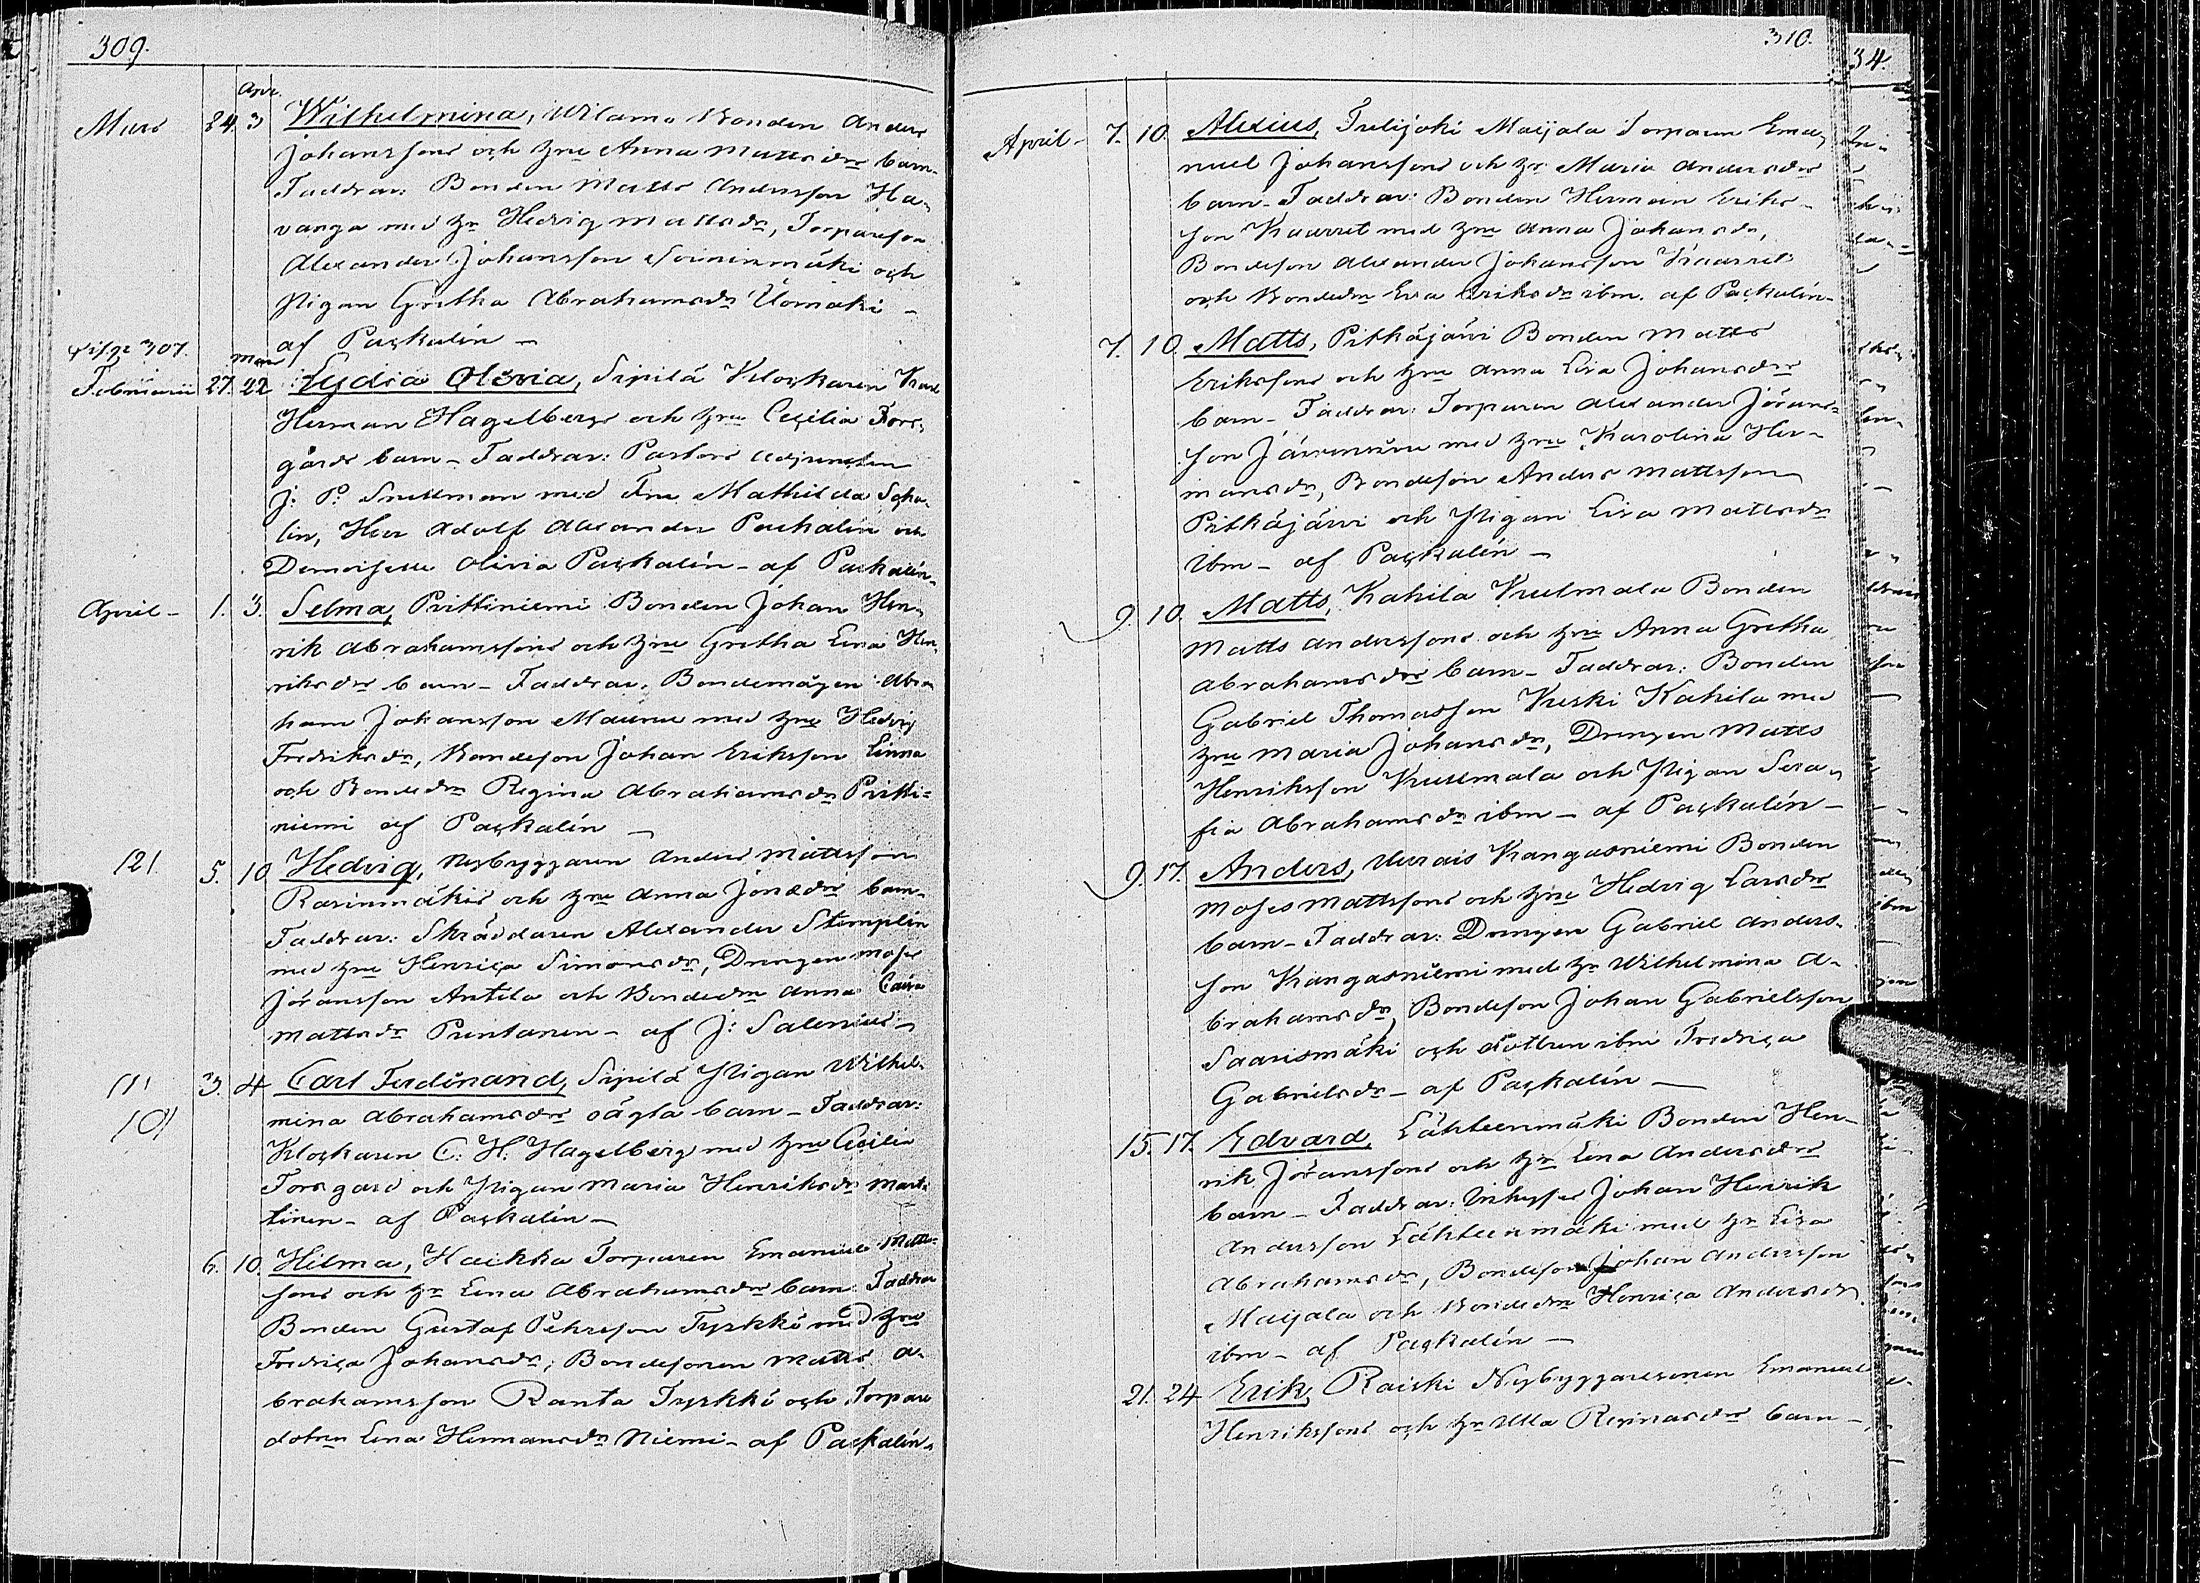 309.
Apr.
Mars 24. 3 Wilhelmina, Wilamo Bonden Anders
Johanssons och hru Anna Mattsdrs barn-
Faddrar: Bonden Matts Andersson Ha-
vanga med hr Hedvig Mattsdr, Torpareson
Alexander Johansson Soininmäki och
Pigan Gretha Abrahamsdr
af Paçkalén -
307.
Mars
Februarii 27. 22 Lydia Olivia, Sipilä Kloçkaren Karl
Herman Hagelbergs och hru Ceçilia Fors-
gårds barn - Faddrar: Pastors Adjuncten
J. P. Snellman med Fru Mathilda
lin, Herr Adolf Alexander Paçkalén och
Demoiselle Olivia Paçkalén - af Paçkalén.
April - 1. 3. Selma, Pirttiniemi Bonden Johan Hen-
rik Abrahamssons och hru Gretha Lena Hen-
riksdrs barn - Faddrar: Bondemågen Abra-
ham Johansson Maunu med hru Hedvig
Fredriksdr, Bondeson Johan Eriksson Linna
och Bondedr Regina Abrahamsdr Pirtti-
niemi af Paçkalén -
121. 5. 10 Hedvig, Nybyggaren Anders Mattsson
och hru Anna Jonsdrs barn-
Faddrar: Skräddaren Alexander Stemplin
med hru Henriça Simonsdr, Drengen Moses
Jöransson Antila och Bondedr Anna Caisa
Mattsdr Puntanen - af J. Salenius -
111 3. 4 Carl Ferdinand, Sipilä Pigan Wilhel-
101 mina Abrahamsdrs oägta barn - Faddrar:
Kloçkaren C. H. Hagelberg med hru Ceçilia
Forsgård och Pigan Maria Henriksdr
- af Paçkalén -
6. 10. Hilma, Haikka Torparen Emanuel Matts-
sons och hr Lena Abrahamsdrs barn Faddrar
Bonden Gustaf Pehrsson Tyrkkö med hru
Fredriça Johansdr, Bondesonen Matts A-
brahamsson Ranta Tyrkkö och Torpare
dotren Lena Hermansdr Niemi - af Paçkalén.
310.
34.
April - 7. 10. Alexius, Tulijoki Maijala Torparen Ema-
nuel Johanssons och hr Maria Andersdrs
barn - Faddrar: Bonden Herman Eriks-
son Kaarret med hru Anna Johansdr,
Bondeson Alexander Johansson Kaarret
och Bondedr Eva Eriksdr ibm. af Paçkalén-
7. 10. Matts, Pitkäjärvi Bonden Matts
Erikssons och hru Anna Lisa Johansdrs
barn - Faddrar: Torparen Alexander Jörans-
son med hru Karolina Her-
mansdr, Bondeson Anders Mattsson
Pitkäjärvi och Pigan Lisa Mattsdr
ibm - af Paçkalén -
9. 10. Matts, Kahila Kulmala Bonden
Matts Anderssons och hru Anna Gretha
Abrahamsdrs barn - Faddrar: Bonden
Gabriel Thomasson Kahila med
hru Maria Johansdr, Drengen Matts
Henriksson Kulmala och Pigan Sera-
fia Abrahamsdr ibm - af Paçkalén -
9. 17. Anders, Kangasniemi Bonden
Moses Mattssons och hru Hedvig Larsdrs
barn - Faddrar: Drengen Gabriel Anders-
son Kangasniemi med hr Wilhelmina A-
brahamsdr, Bondeson Johan Gabrielsson
Saarismäki och dottren ibm Fredriça
Gabrielsdr - af Paçkalén -
15. 17. Edvard, Lähteenmäki Bonden Hen-
rik Jöranssons och hr Lena Andersdrs
barn - Faddrar: Inhyses Johan Henrik
Andersson Lähteenmäki med hr Lisa
Abrahamsdr, Bondeson Johan Andersson
Maijala och Bondedr Henriça Andersdr
ibm - af Paçkalén -
21. 24 Erik, Raiski Nybyggaresonen Emanuel
Henrikssons och hr Ulla Reginasdrs barn -